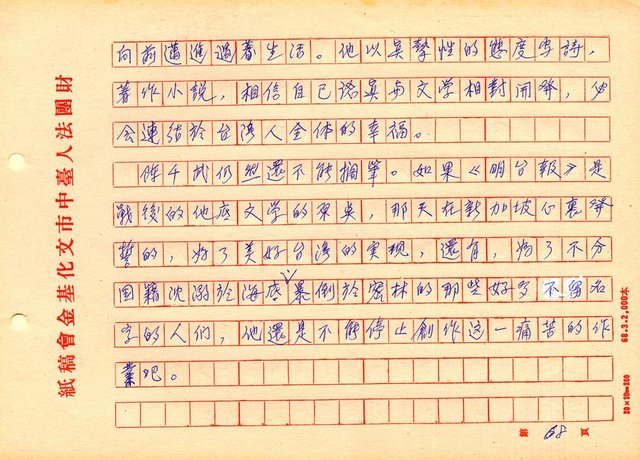 向前邁進過着生活。他以真摯性的態度寫詩，
著作小說，相信自己認真与文学相對開發，必
会連結於台湾人全体的幸福。
陳千武仍然還不能擱筆。如果《明台報》是
戰後的他底文学的原臭，那天在新加坡心裏發
誓的，為了美好台湾的実現，還有，為了不分
国籍沈溺於海底、暴倒於密林的那些好多不留名
字的人们，他還是不能停止創作這一痛苦的作
業吧。
財團法人臺中市文化基金會稿紙
68.3.2,000本
20×10=200
第 68 頁